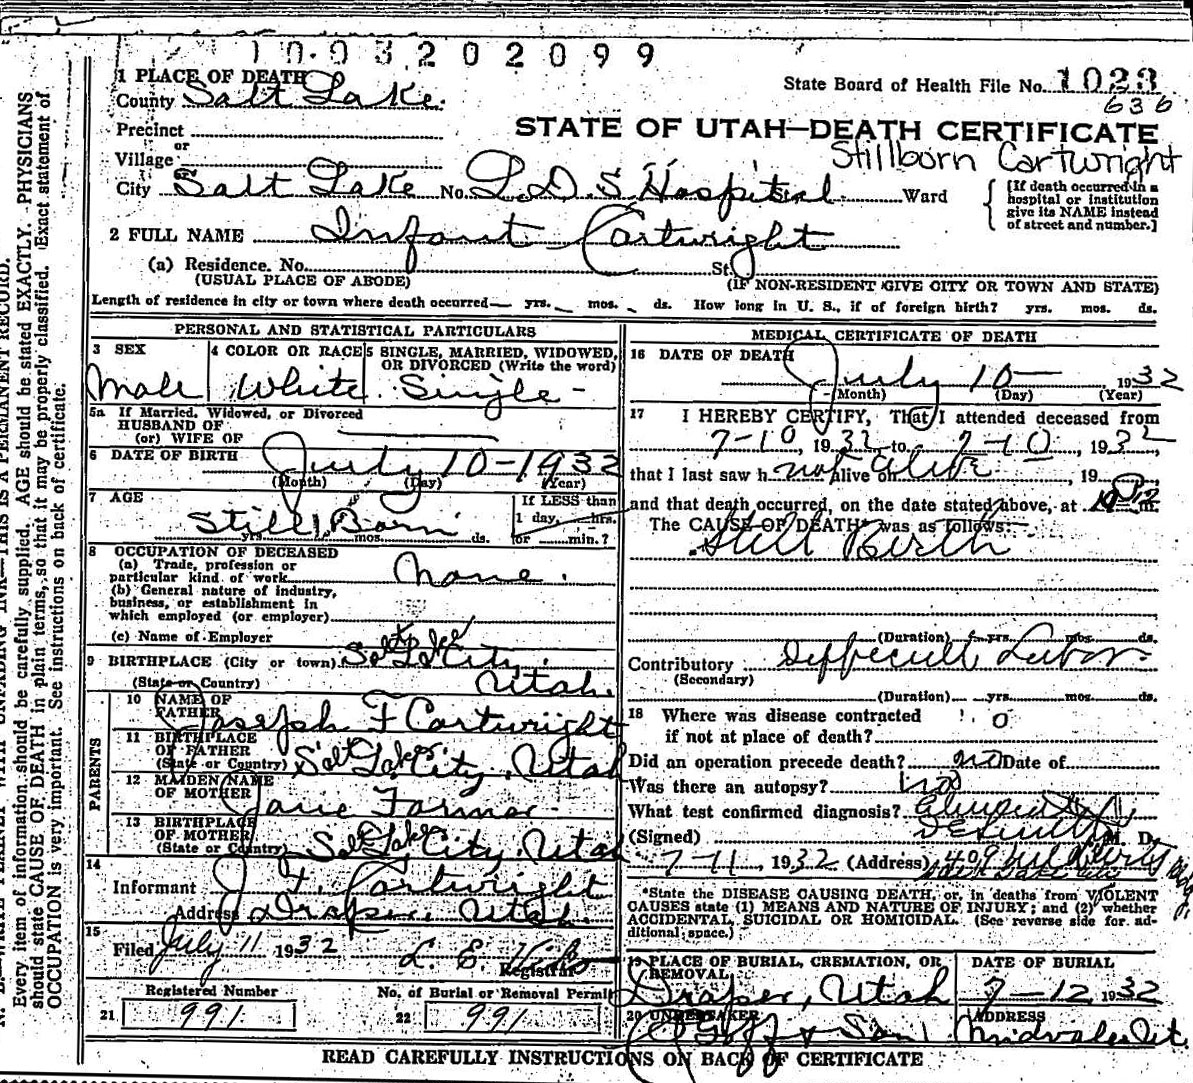 1003202099
1 PLACE OF DEATH
County Salt Lake.
State Board of Health File No. 1023
636
Precinct
or
Village
STATE OF UTAH—DEATH CERTIFICATE
Stillborn Cartwright
City Salt Lake No. L.D.S Hospital St. Ward
[If death occurred in a hospital or institution give its NAME instead of street and number.]
2 FULL NAME Infant Cartwright
(a) Residence. No. St.
(USUAL PLACE OF ABODE) (IF NON-RESIDENT GIVE CITY OR TOWN AND STATE)
Length of residence in city or town where death occurred— yrs. mos. ds. How long in U. S., if of foreign birth? yrs. mos. ds.
PERSONAL AND STATISTICAL PARTICULARS
3 SEX
Male
4 COLOR OR RACE
White
5 SINGLE, MARRIED, WIDOWED, OR DIVORCED (Write the word)
Single -
5a If Married, Widowed, or Divorced
HUSBAND OF
(or) WIFE OF
6 DATE OF BIRTH July 10-1932
(Month) (Day) (Year)
7 AGE
Still Born
yrs. mos. ds.
If LESS than
1 day, hrs.
or min.?
8 OCCUPATION OF DECEASED
(a) Trade, profession or
particular kind of work None.
(b) General nature of industry,
business, or establishment in
which employed (or employer)
(c) Name of Employer
9 BIRTHPLACE (City or town) Salt Lake City.
(State or Country) Utah.
PARENTS
10 NAME OF FATHER Joseph F Cartwright
11 BIRTHPLACE OF FATHER
(State or Country) Salt Lake City, Utah
12 MAIDEN NAME OF MOTHER Jane Farmer
13 BIRTHPLACE OF MOTHER
(State or Country) Salt Lake City, Utah
14
Informant J. F. Cartwright
Address Draper, Utah.
15
Filed July 11 1932 L. E.
Registrar
Registered Number
21 991
No. of Burial or Removal Permit
22 991
MEDICAL CERTIFICATE OF DEATH
16 DATE OF DEATH
July 10— 1932
(Month) (Day) (Year)
17 I HEREBY CERTIFY, That I attended deceased from
7-10, 1932, to 7-10, 1932
that I last saw h not alive on alive, 19
and that death occurred, on the date stated above, at m.
The CAUSE OF DEATH* was as follows:
Still Birth
(Duration) yrs. mos. ds.
Contributory Difficult Labor.
(Secondary)
(Duration) yrs. mos. ds.
18 Where was disease contracted
if not at place of death?
Did an operation precede death? no Date of
Was there an autopsy? no
What test confirmed diagnosis?
(Signed) M. D.
7-11, 1932 (Address) 409
Salt Lake City
*State the DISEASE CAUSING DEATH, or, in deaths from VIOLENT
CAUSES state (1) MEANS AND NATURE OF INJURY; and (2) whether
ACCIDENTAL, SUICIDAL OR HOMICIDAL. (See reverse side for additional space.)
19 PLACE OF BURIAL, CREMATION, OR REMOVAL
Draper, Utah
DATE OF BURIAL
7-12, 1932
20 UNDERTAKER
Goff & Son
ADDRESS
Midvale Ut.
READ CAREFULLY INSTRUCTIONS ON BACK OF CERTIFICATE
WRITE PLAINLY WITH UNFADING INK—THIS IS A PERMANENT RECORD.
Every item of information should be carefully supplied. AGE should be stated EXACTLY. PHYSICIANS
should state CAUSE OF DEATH in plain terms, so that it may be properly classified. Exact statement of
OCCUPATION is very important. See instructions on back of certificate.